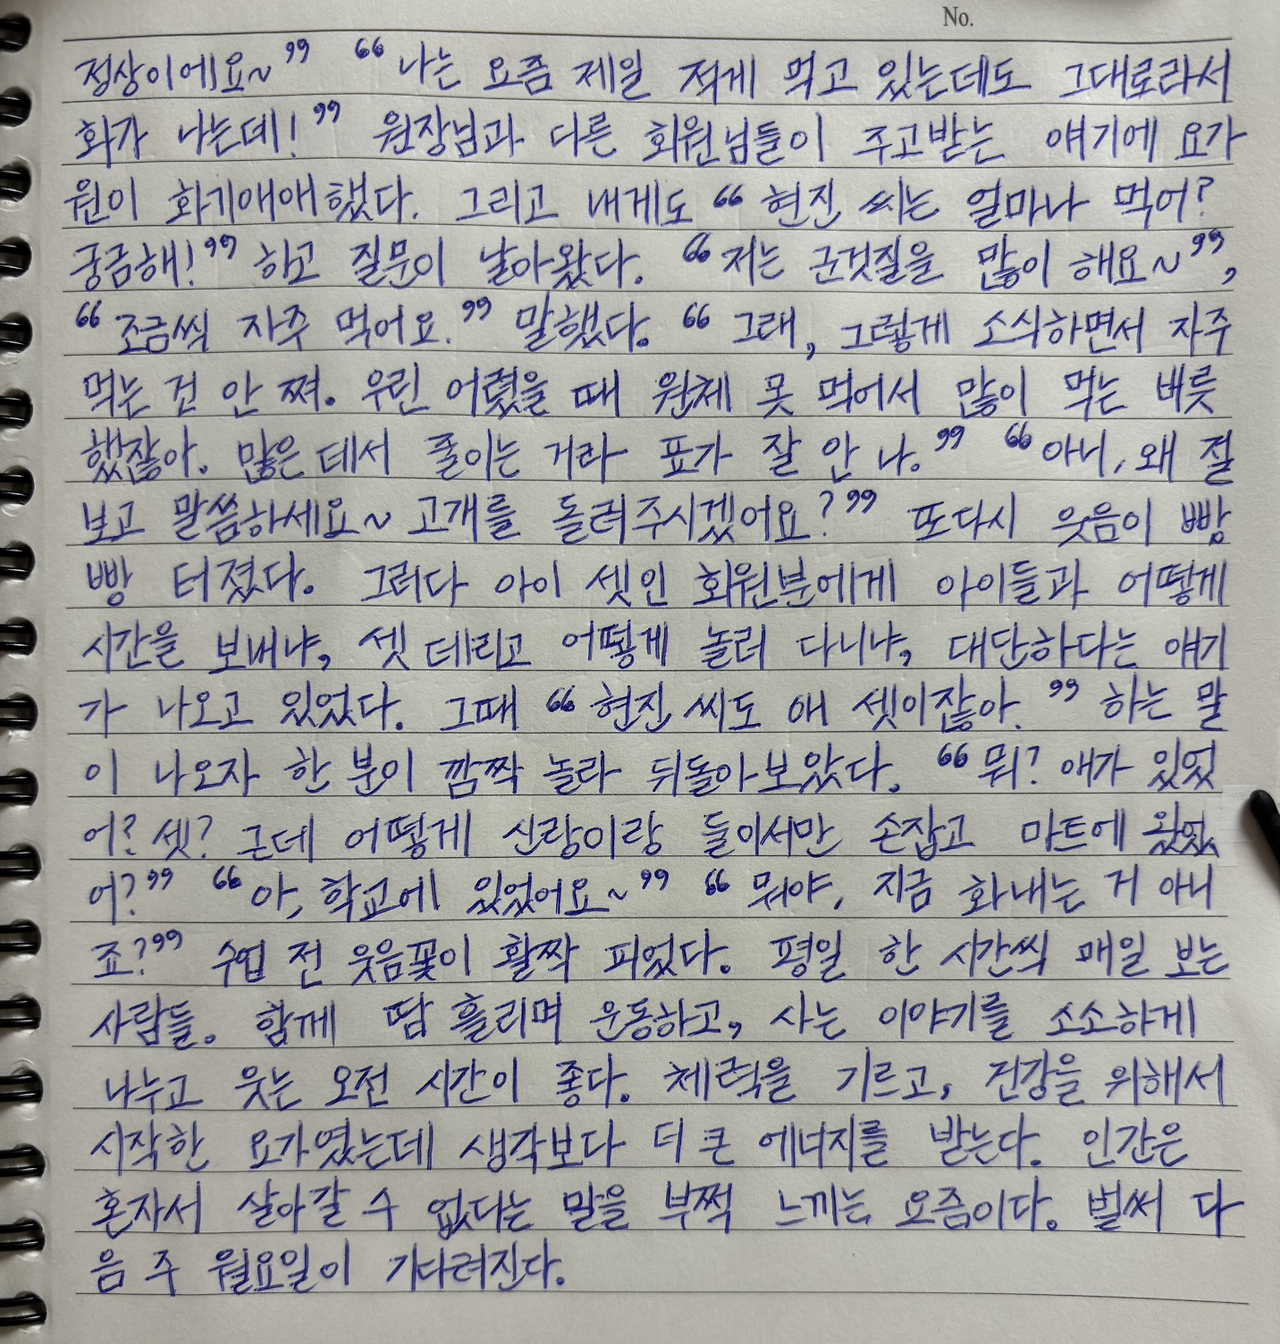 No.
정상이에요~" "나는 요즘 제일 적게 먹고 있는데도 그대로라서
화가 나는데!" 원장님과 다른 회원님들이 주고받는 얘기에 요가
원이 화기애애했다. 그리고 내게도 "현진 씨는 얼마나 먹어?
궁금해!" 하고 질문이 날아왔다. "저는 군것질을 많이 해요~",
"조금씩 자주 먹어요." 말했다. "그래, 그렇게 소식하면서 자주
먹는 건 안 쪄. 우린 어렸을 때 원체 못 먹어서 많이 먹는 버릇
했잖아. 많은 데서 줄이는 거라 표가 잘 안 나." "아니, 왜 절
보고 말씀하세요~ 고개를 돌려주시겠어요?" 또다시 웃음이 빵
빵 터졌다. 그러다 아이 셋인 회원분에게 아이들과 어떻게
시간을 보내냐, 셋 데리고 어떻게 놀러 다니냐, 대단하다는 얘기
가 나오고 있었다. 그때 "현진 씨도 애 셋이잖아." 하는 말
이 나오자 한 분이 깜짝 놀라 뒤돌아보았다. "뭐? 애가 있었
어? 셋? 근데 어떻게 신랑이랑 둘이서만 손잡고 마트에 왔었
어?" "아, 학교에 있었어요~" "뭐야, 지금 화내는 거 아니
죠?" 수업 전 웃음꽃이 활짝 피었다. 평일 한 시간씩 매일 보는
사람들. 함께 땀 흘리며 운동하고, 사는 이야기를 소소하게
나누고 웃는 오전 시간이 좋다. 체력을 기르고, 건강을 위해서
시작한 요가였는데 생각보다 더 큰 에너지를 받는다. 인간은
혼자서 살아갈 수 없다는 말을 부쩍 느끼는 요즘이다. 벌써 다
음 주 월요일이 기다려진다.